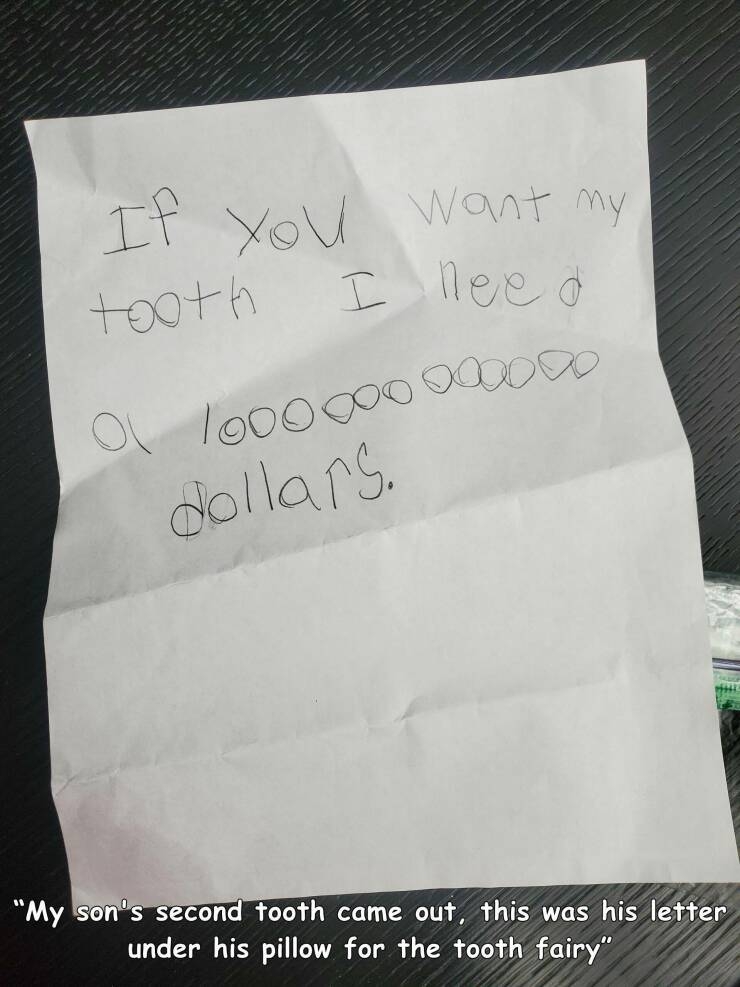 If you want my
tooth I need
a 1000000000000
dollars.
"My son's second tooth came out, this was his letter
under his pillow for the tooth fairy"